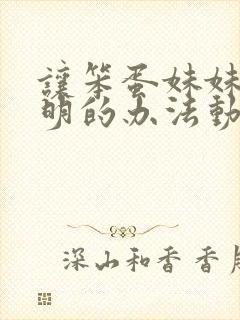 讓笨蛋妹妹
明的办法動
深山和香香